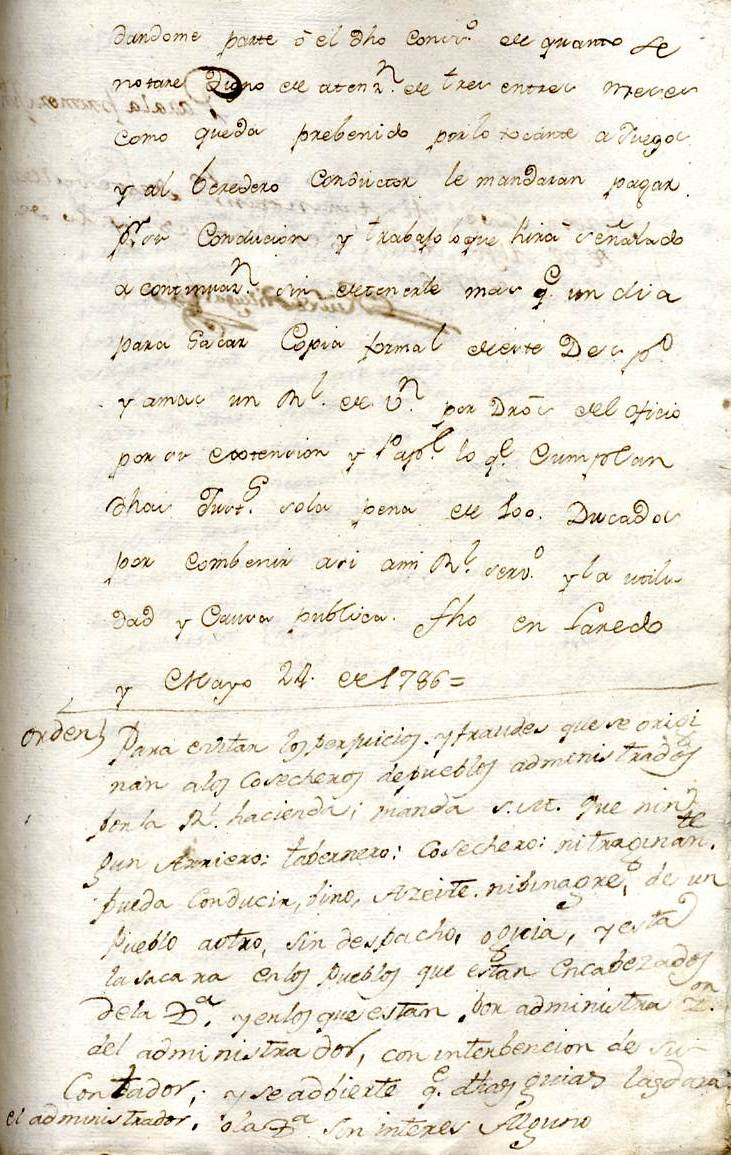 dandome parte ô el dho Conser.º de quanto se
notare Digno de atenz.n de tres entres meses
como queda prebenido por lo tocante a Juegos
y al beredero Conductor le mandaran pagar
p.r su Conducion y trabajo lo que hirá señalado
a continuaz.n sin detenerle mas q.e un dia
para Sacar Copia formal de este Desp.º
y amas un R.l de V.n por Dros del oficio
por su detencion y Pap.l lo q.e Cumplan
dhas Just.s sola pena de 100. Ducados
por combenir asi ami R.l serv.º y la utili-
dad y Causa publica. fho en Laredo
y Mayo 24. de 1786=
orden
Para evitar los perjuicios. y fraudes que se origi
nan alos Cosecheros de pueblos administrados
por la R.l hacienda; manda S.M. que nin
gun Arriero: tabernero: Cosechero: ni traginante.
pueda Conducir, bino, Azeite. nibinagre, de un
Pueblo aotro, sin despacho, o guia, y esta
la sacara enlos Pueblos que estan encabezados
dela J.a y enlos que estan por administraz.on
del administrador, con interbencion de su
Contador; y se adbierte q.e dhas guias las dara
el administrador. o la J.a sin interes Alguno